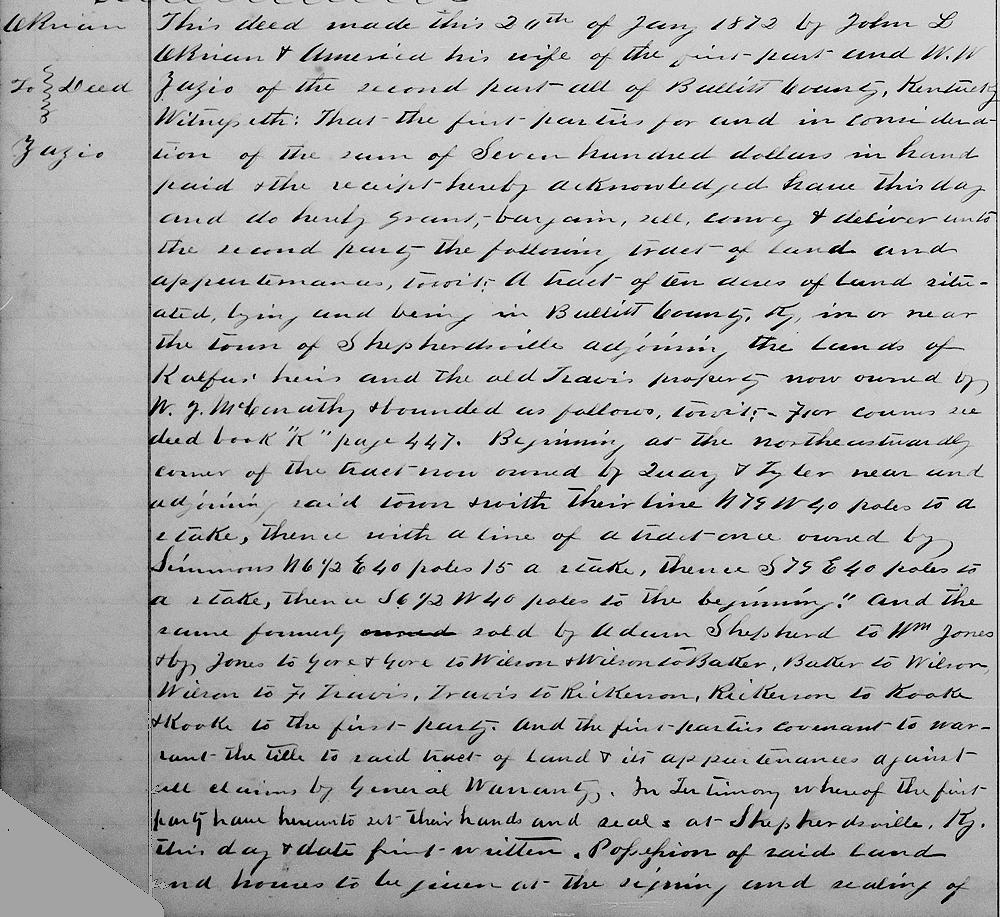 This deed made this 20th of Jany 1872 by John L
& America his wife of the first part and W. W
To Deed
Fazio of the second part all of Bullitt County, Kentucky
Witnesseth: That the first parties for and in considera-
Fazio
tion of the sum of Seven hundred dollars in hand
paid & the receipt hereby acknowledged have this day
and do hereby grant, bargain, sell, convey & deliver unto
the second party the following tract of land and
appurtenances, towit: A tract of ten acres of land situ-
ated, lying and being in Bullitt County, Ky, in or near
the town of Shepherdsville adjoining the lands of
Kalfus' heirs and the old Travis property now owned by
W. J. McConathy & bounded as follows, towit:- For courses see
deed book "K" page 447. Beginning at the northeastwardly
corner of the tract now owned by Quay & Tyler near and
adjoining said town & with their line N79 W40 poles to a
stake, thence with a line of a tract once owned by
Simmons N6½ E40 poles 15 a stake, thence S79 E40 poles to
a stake, thence S6½ W40 poles to the beginning." and the
same formerly owned sold by Adam Shepherd to Wm Jones
& by Jones to Gore & Gore to Wilson & Wilson to Baker, Baker to Wilson,
Wilson to F. Travis, Travis to Rickerson, Rickerson to Kooke
& Kooke to the first party. And the first parties covenant to war-
rant the title to said tract of land & its appurtenances against
all claims by General Warranty. In Testimony whereof the first
party have hereunto set their hands and seals at Shepherdsville, Ky.
this day & date first written. Possession of said land
and houses to be given at the signing and sealing of